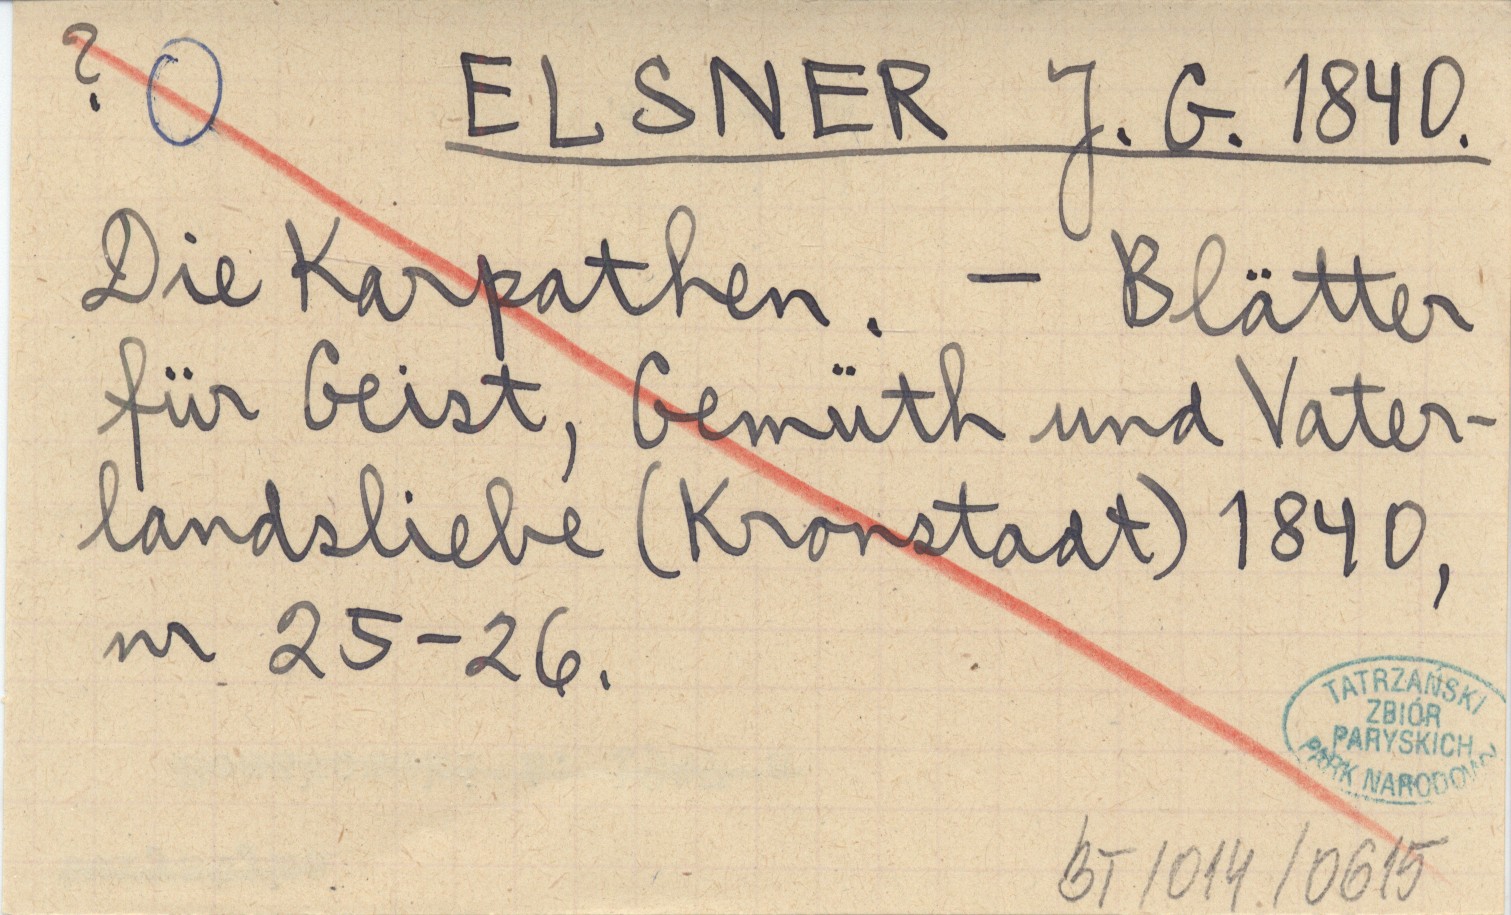 ? ELSNER J. G. 1840.
Die Karpathen. — Blätter
für Geist, Gemüth und Vater-
landsliebe (Kronstadt) 1840,
nr 25-26.
TATRZAŃSKI
ZBIÓR
PARYSKICH
PARK NARODOWY
BT/014./0615